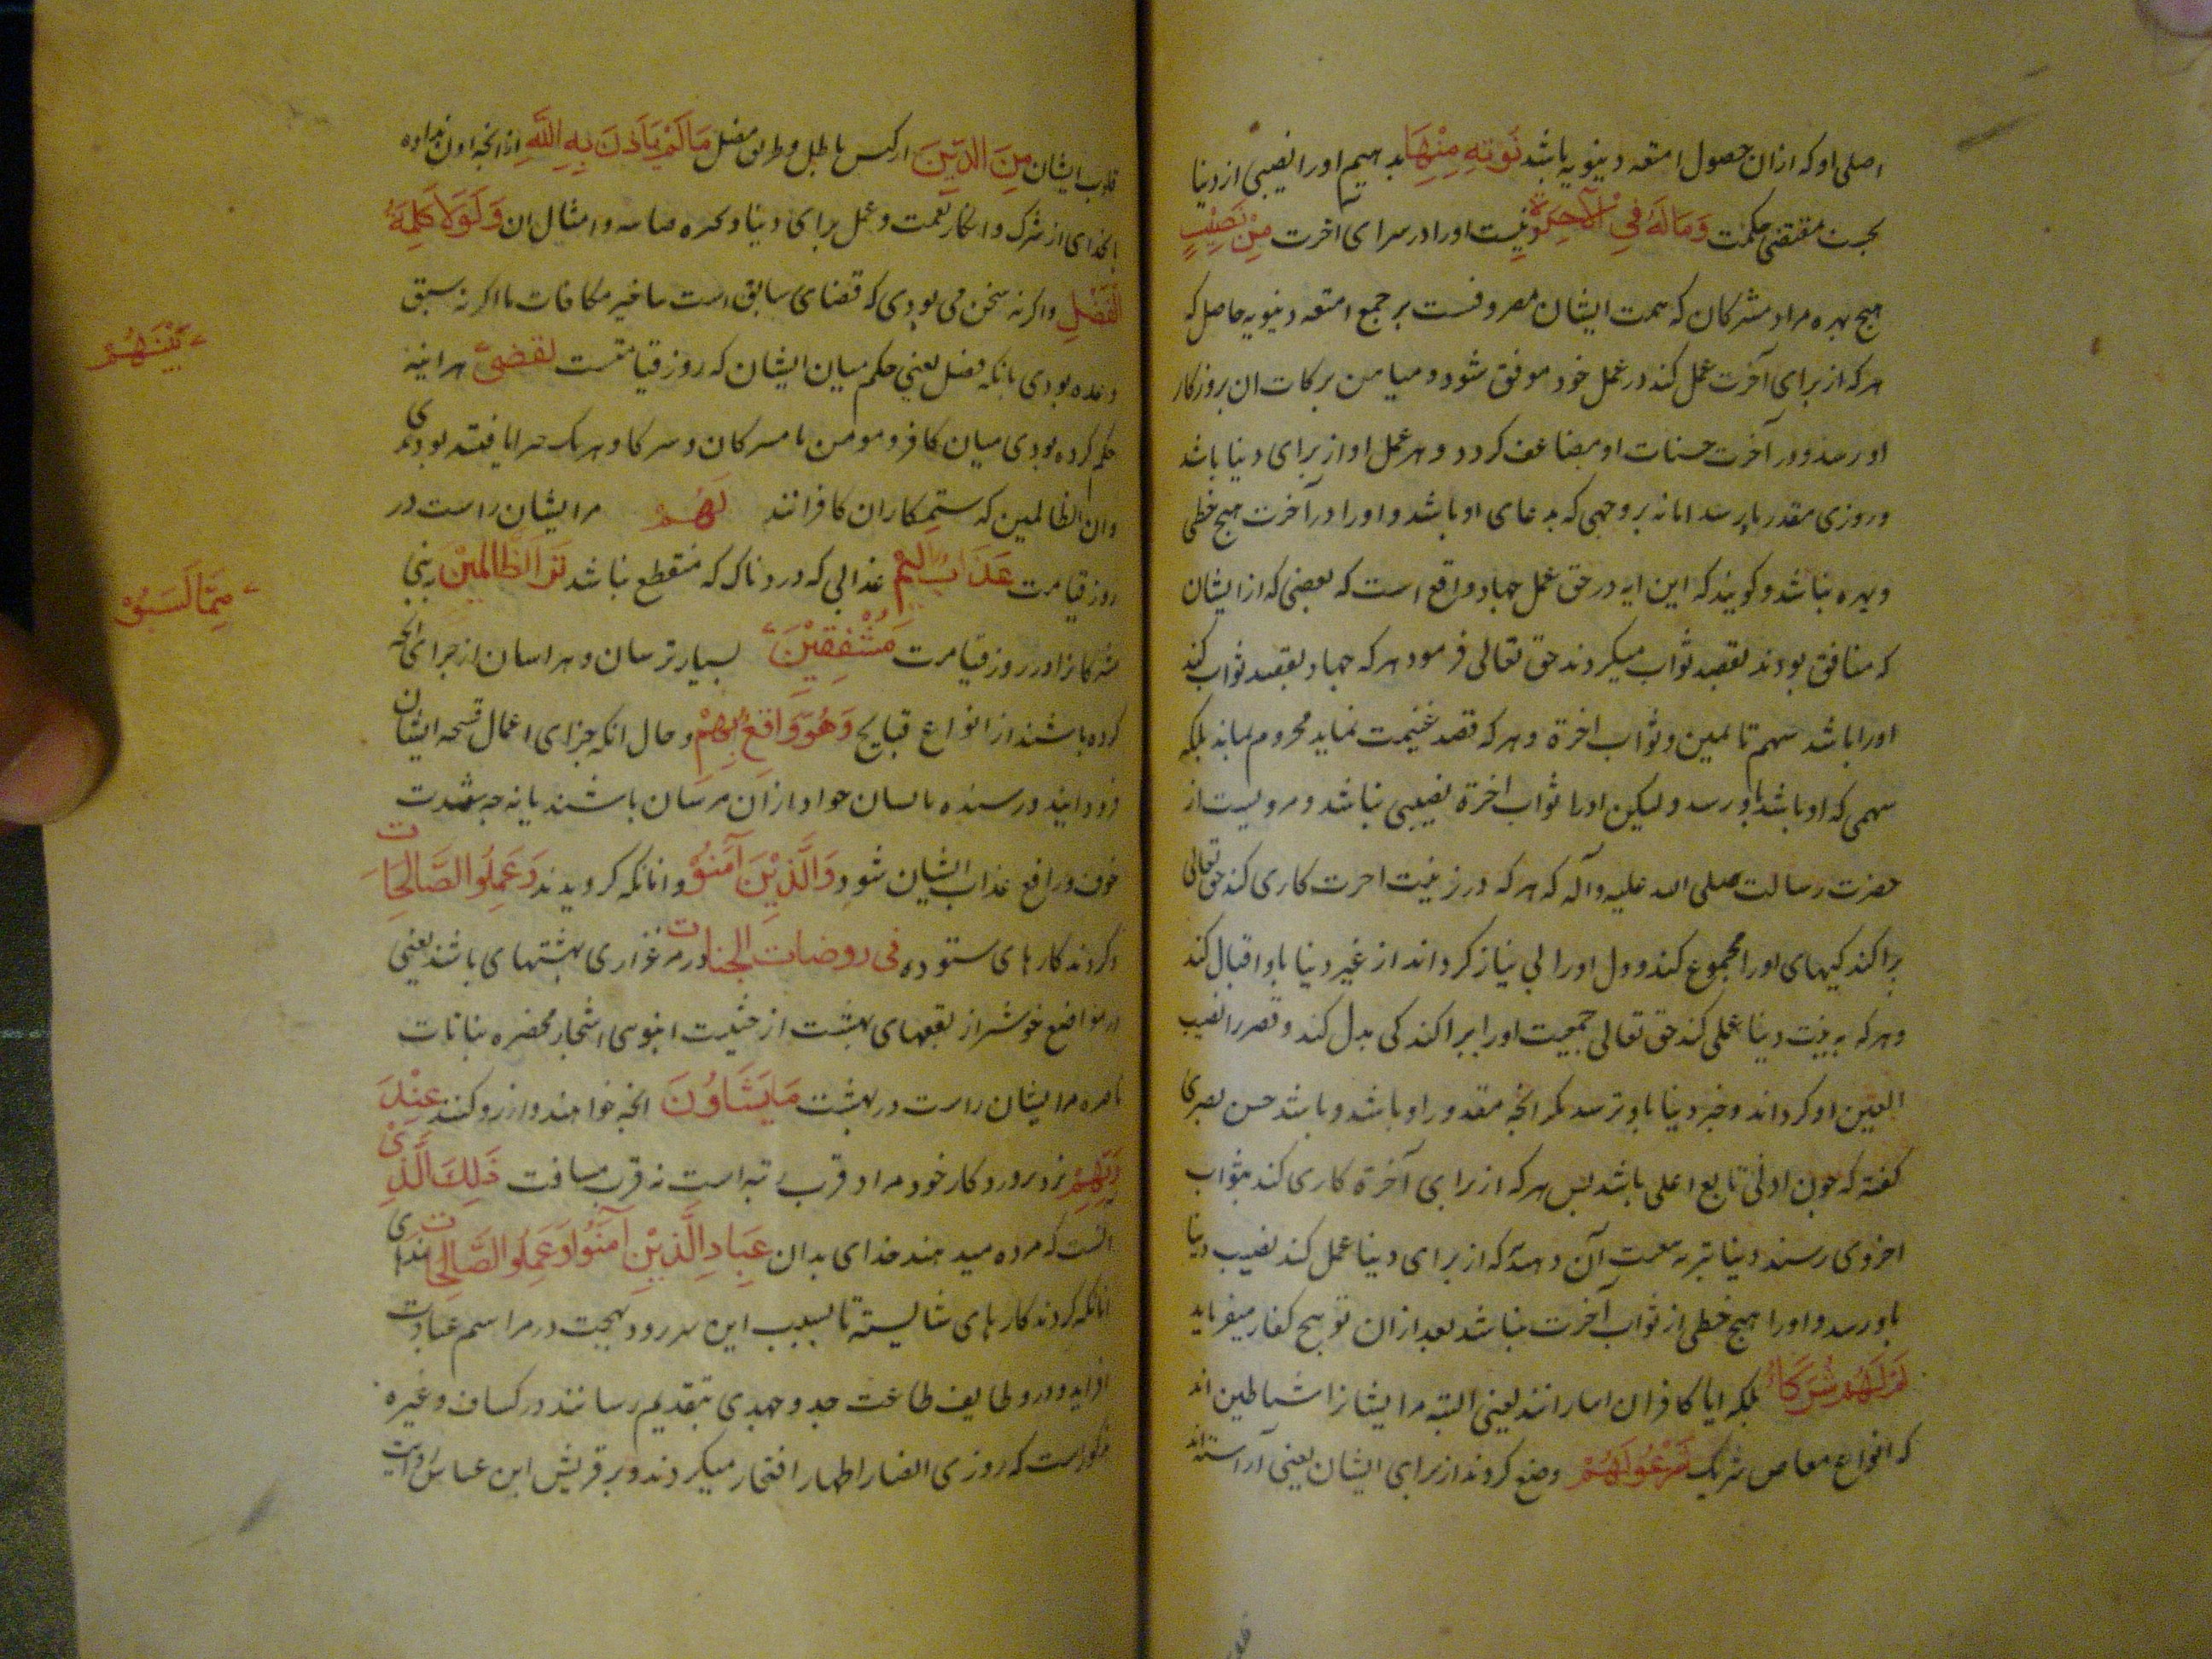 اصلی او که ازان حصول امتعه دینویه باشد نُوتِهِ مِنْهَا بدهیم اورا نصیبی از دنیا
بحسب مقتضی حکمت وَمَالَهُ فِي الْآخِرَةِ ونیست اورا در سرای آخرت مِنْ نَصِیْبٍ
هیچ بهره مراد مشرکان که همت ایشان مصروفست بر جمع امتعه دنیویه حاصل که
هرکه از برای آخرت عمل کند در عمل خود موفق شود و میامن برکات ان بروزکار
او رسد و در آخرت حسنات او مضاعف کردد و هر عمل او از برای دینا باشد
وروزی مقدر باو رسد اما نه بروجهی که مدعای او باشد و اورا در آخرت هیچ خطی
وبهره نباشد و کویند که این ایه در حق عمل جهاد واقع است که بعضی که از ایشان
که منافق بودند بقصد ثواب میکردند حق تعالی فرمود هرکه جهاد بقصد ثواب کند
اورا باشد سهم تا لمین وثواب اخرة وهرکه قصد غنیمت نماید محروم نماند بلکه
سهمی که او باشد باو رسد ولیکن اورا ثواب اخرة نصیبی نباشد ومرویست از
حضرت رسالت صلی الله علیه وآله که هرکه در زنیت اخرت کاری کند حق تعالی
براکند کیهای اورا مجموع کند و دل اورا بی نیاز کرداند از غیر و دینا باو اقبال کند
وهرکه به نیت دینا عملی کند حق تعالی جمعیت اورا براکند کی بدل کند و فقر را نصیب
العین او کرداند و خبر دینا باو نرسد مکر انچه مقدور او باشد و باشد حسن بصری
کفته که چون ادنی تابع اعلی باشد پس هرکه از برای آخرة کاری کند بثواب
اخروی رسند دینا نیز به آن دهند که از برای دینا عمل کند نصیب دینا
باو رسد و اورا هیچ خطی از ثواب آخرت نباشد بعد ازان توبیح کفار میفرماید
اَمْ لَهُمْ شُرَكَاءُ بلکه ایا کافران را انند یعنی البته مر ایشانرا شیاطین اند
که انواع معاصی شریک شَرَعُوا لَهُمْ وضع کردند از برای ایشان یعنی آراسته اند
قلوب ایشان مِنَ الدِّيْنَ از کیش باطل و طریق مضل مَا لَمْ يَاْذَنْ بِهِ اللّٰهِ از انچه اذن نداده
خدای از شرک و انکار نعمت و عمل برای دینا و وامثال ان وَلَوْلَا كَلِمَةُ
الْفَصْلِ واکر نه سخن می بودی که قضای سابق است تاخیر مکافات یا اکر نه سبق
وعده بودی بانکه فصل یعنی حکم میان ایشان که روز قیامتست لقضی هراینه
بَیْنَهُمْ
حکم کرده بودی میان کافر و مومن یا مشرکان و شرکا و هریک جزا یافته بودندی
وان الظالمین که ستمکاران کافرانند لَهُمْ مر ایشان راست در
روز قیامت عَذَابٌ اَلِيْمٌ عذابی که دردناک که منقطع نباشد تَرَ الظَّالِمِيْنَ بینی
مِمَّا كَسَبُوْا
مشرکانرا در روز قیامت مُشْفِقِيْنَ بسیار ترسان وهراسان از جزای انچه
کرده باشند از انواع قبایح وَهُوَ وَاقِعٌ بِهِمْ وحال انکه جزای اعمال قبیحه ایشان
فرود ایند و رسنده بایسان خواه ازان ترسان باشند یا نه چه شدت
خوف و رافع عذاب ایشان شود وَالَّذِيْنَ آمَنُوْا وانانکه کرویدند وَعَمِلُوا الصَّالِحَاتِ
وکردند کارهای ستوده فی روضات الجنات در مرغزاری بهشتهای باشند یعنی
در مواضع خوشتر از بقعهای بهشت از حیثیت انبوسی اشجار مخضره نباتات
ناضره مر ایشان راست در بهشت مَا يَشَاؤُنَ انچه خواهند وارزو کنند عِنْدَ
رَبِّهِمْ نزد پروردکار خود مراد قرب رتبه است نه قرب مسافت ذَلِكَ الَّذِيْ
انست که مرده میدهند خدای بدان عِبَادِ الَّذِيْنَ آمَنُوْا وَعَمِلُوا الصَّالِحَاتِ
انانکه کردند کارهای شایسته تا بسبب این سرور و بهجت در مراسم عبادت
افزاید و در وظایف طاعت جد و جهدی بتقدیم رسانند در کشاف و غیره
مذکور است که روزی انصار اظهار افتخار میکردند و بر قریش ابن عباس روایت